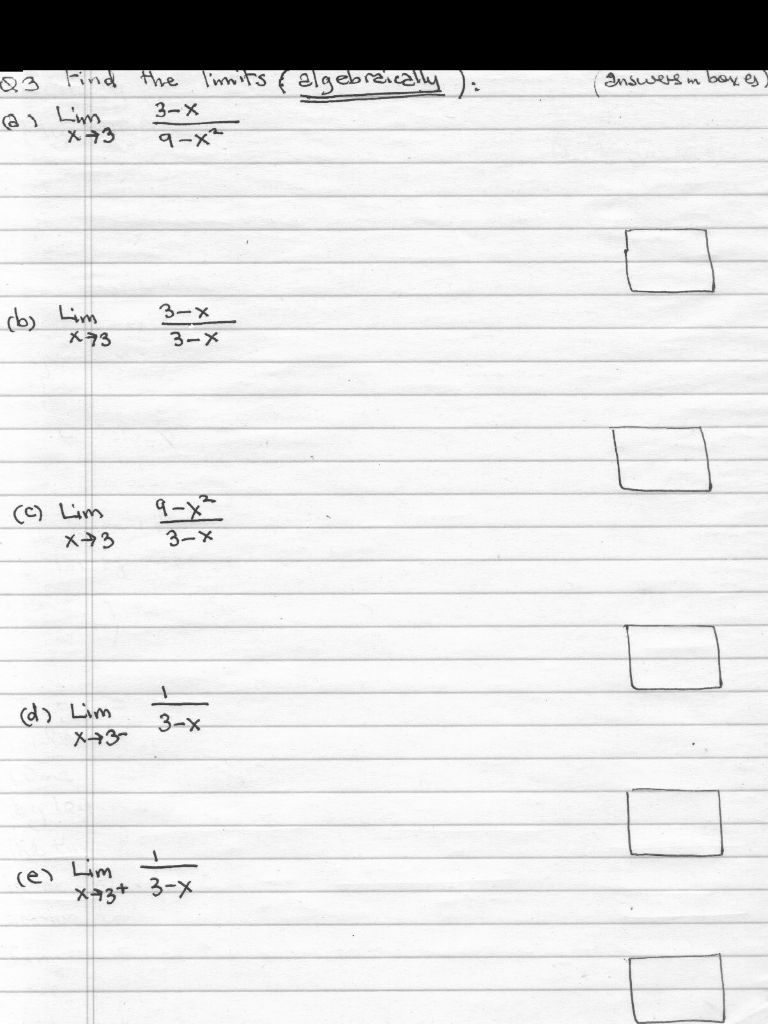 Q.3 Find the limits (algebraically): (answers in boxes)
(a) Lim x→3 3-x / 9-x²
(b) Lim x→3 3-x / 3-x
(c) Lim x→3 9-x² / 3-x
(d) Lim x→3⁻ 1 / 3-x
(e) Lim x→3⁺ 1 / 3-x